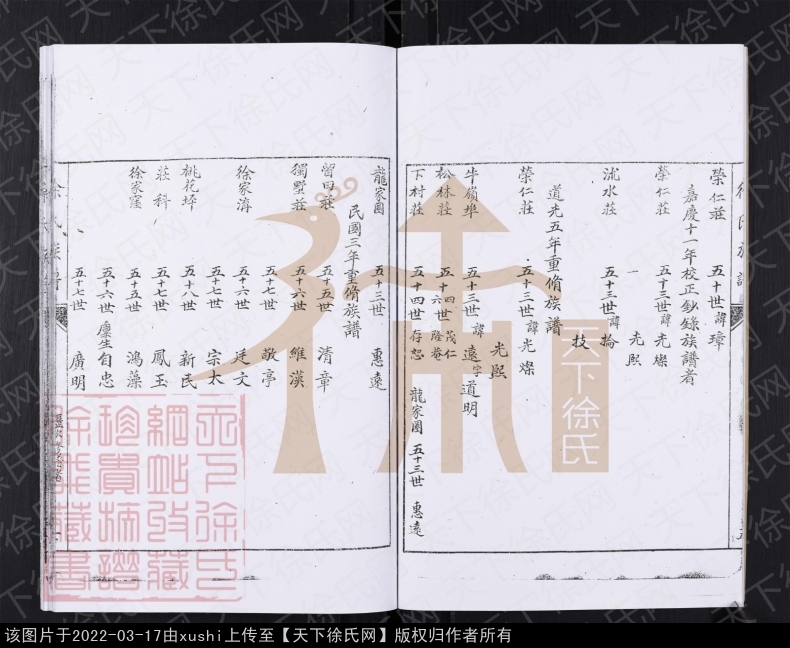 榮仁莊 五十世諱璋
嘉慶十一年校正鈔錄族譜者
榮仁莊 五十三世諱光燦
一 光熙
沭水莊 五十三世諱掄
技
道光五年重脩族譜
榮仁莊 五十三世諱光燦
光熙
牛嶺埠 五十三世諱遠字道明
松林莊 五十四世茂仁
五十六世隆菴
下村莊 五十四世存恕 龍家圈 五十三世 惠遠
龍家圈 五十三世 惠遠
民國三年重脩族譜
留田莊 五十五世 清章
獨墅莊 五十六世 維漢
五十七世 敬亭
徐家濤 五十六世 廷文
五十七世 宗太
桃花坪 五十八世 新民
莊科 五十七世 鳳玉
徐家窪 五十五世 鴻藻
五十六世 廩生自忠
五十七世 廣明
徐氏族譜
天下徐氏
天下徐氏
網站收藏
珍貴族譜
徐戎藏書
该图片于2022-03-17由xushi上传至【天下徐氏网】版权归作者所有